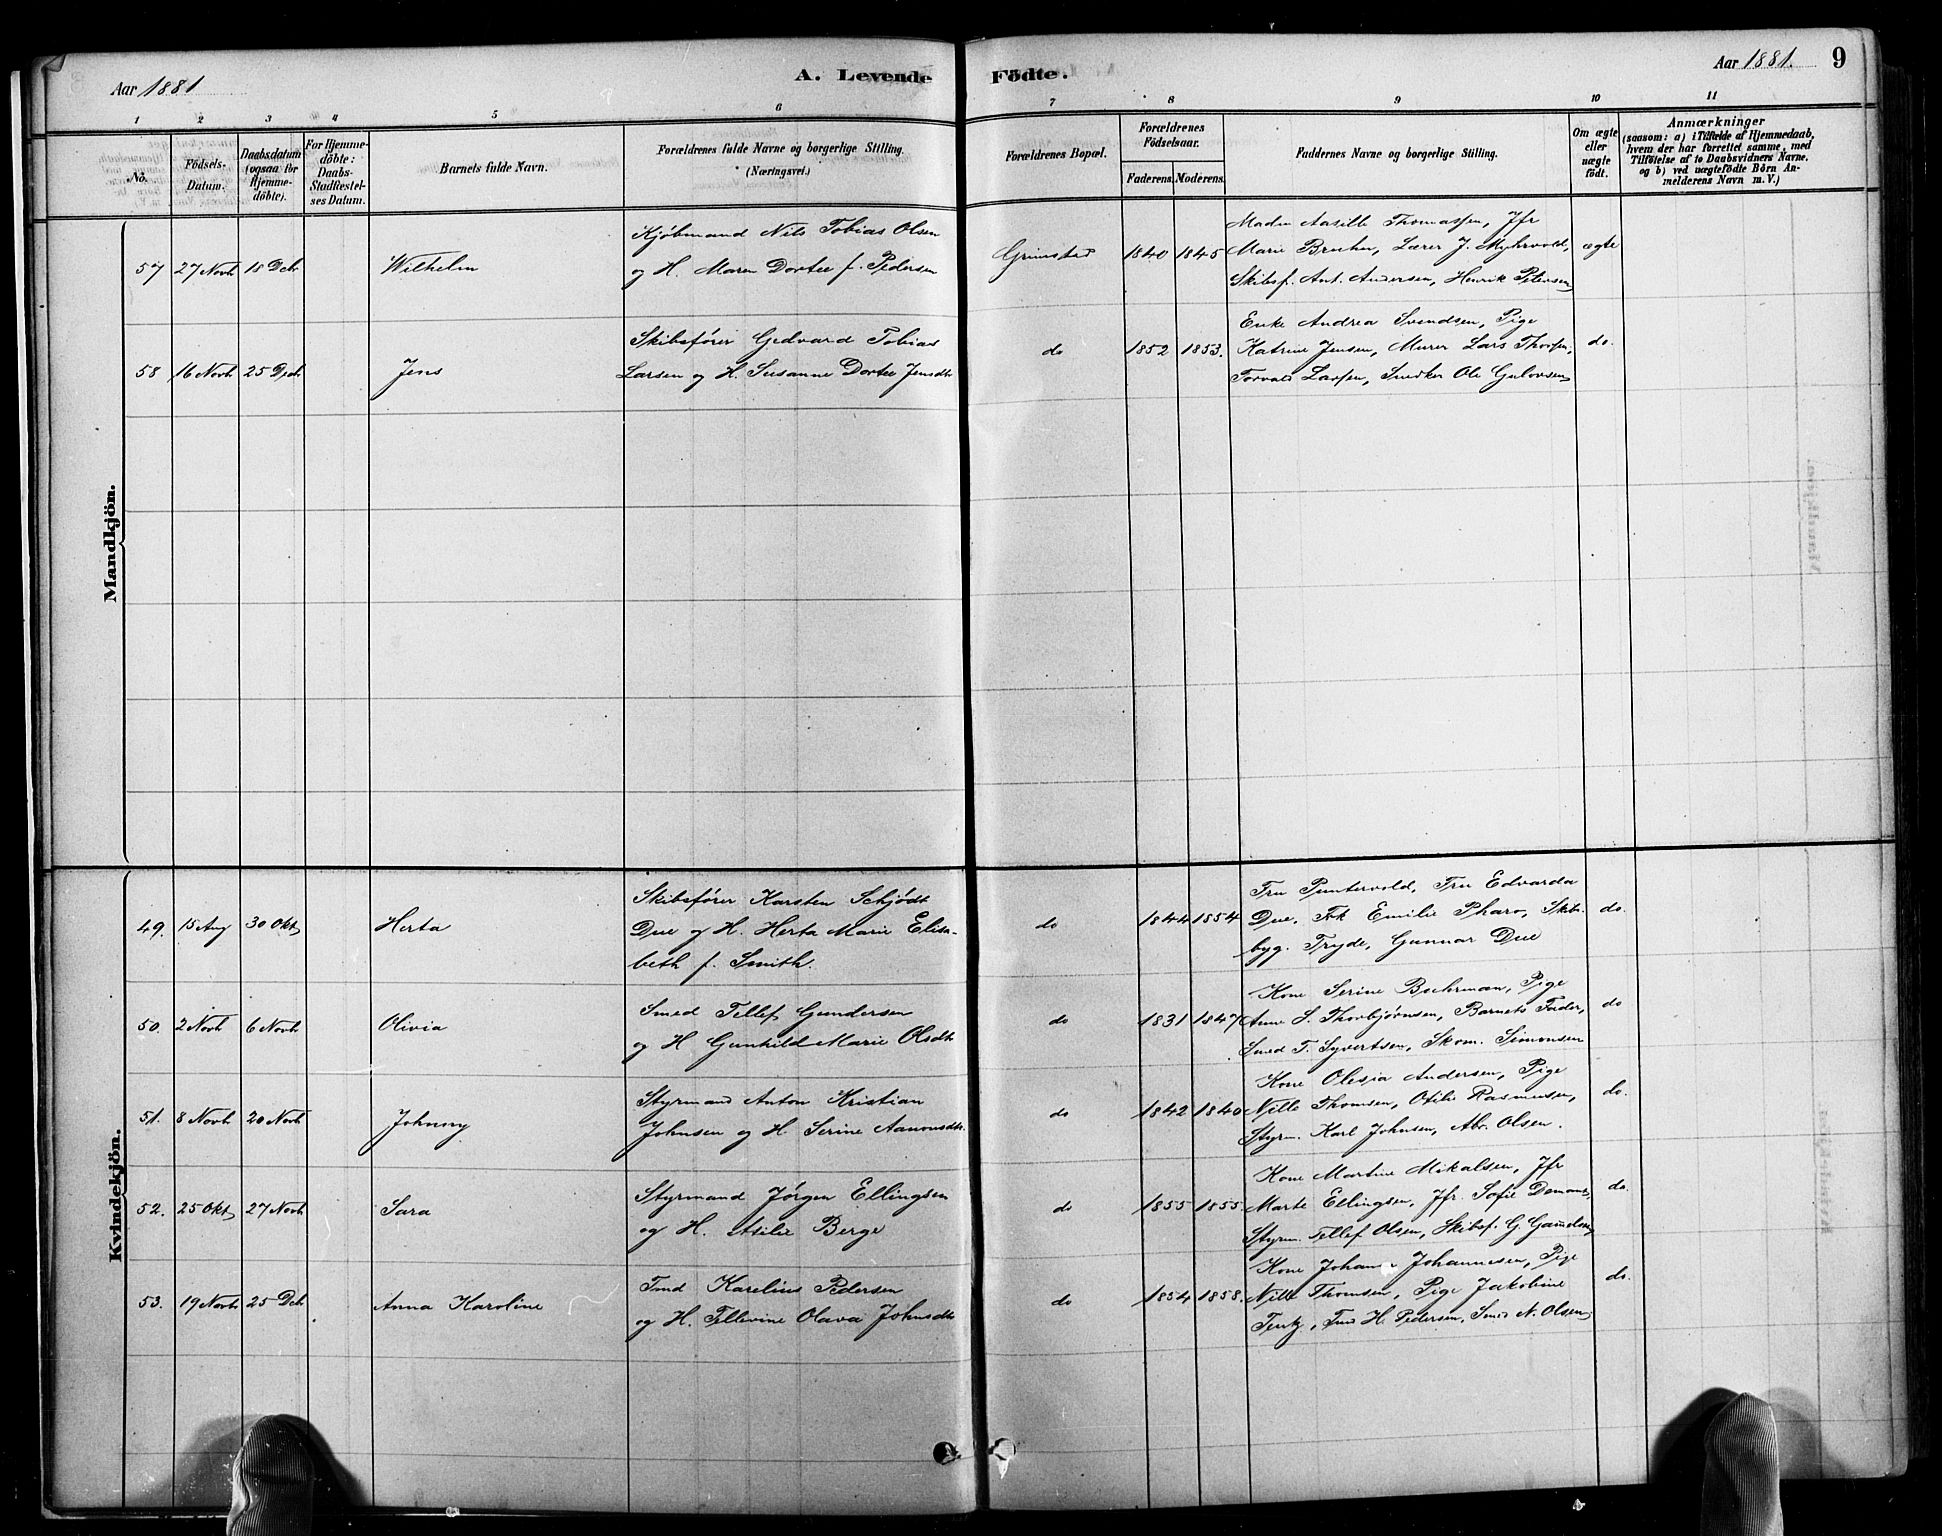 Aar 1881
A. Levende Födte.
Aar 1881. 9
1 2 3 4 5 6 7 8 9 10 11
No.
Födsels-Datum.
Daabsdatum (ogsaa for Hjemme-döbte).
For Hjemme-döbte: Daabs-Stadfæstel-ses Datum.
Barnets fulde Navn.
Forældrenes fulde Navne og borgerlige Stilling.
(Næringsvei.)
Forældrenes Bopæl.
Forældrenes Födselsaar.
Faderens. Moderens.
Faddernes Navne og borgerlige Stilling.
Om ægte eller uægte födt.
Anmærkninger
(saasom: a) i Tilfælde af Hjemmedaab,
hvem der har forrettet samme, med
Tilföielse af to Daabsvidners Navne.
og b) ved uægtefödte Börn An-
melderens Navn m. V.)
Mandkjön.
57 27 Novb 18 Dcb Wilhelm
Kjøbmand Nils Tobias Olsen
og H. Maren Dortee f. Pedersen
Grimstad 1840 1845
Maden Aasille Thomassen, Jfr
Marie Bruhn, Lærer J. Myhrvold,
Skibsf. Ant. Andersen, Henrik Petersen
ægte
58 16 Novb 25 Dcb Jens
Skibsfører Gedvard Tobias
Larsen og H. Susanne Dortee Jensdtr
do 1852 1853.
Enke Andrea Svendsen, Pige
Katrine Jensen, Murer Lars Thorsen,
Torvald Larsen, Snedker Ole Gulovsen
do.
Kvindekjön.
49. 15 Aug 30 Okt Herta
Skibsfører Karsten Schjødt
Due og H. Herta Marie Elisa-
beth f. Smith.
do 1844 1854
Fru Puntervold, Fru Edvarda
Due, Frk Emilie Pharo, Skibs-
byg. Fryde, Gunnar Due
do.
50. 2 Novb 6 Novb Olivia
Smed Tellef Gundersen
og H Gunhild Marie Olsdtr
do 1831 1847
Kone Serine Bschrman, Pige
Anne S. Thorbjørnsen, Barnets Fader,
Smed T. Syvertsen, Skom. Simonsen
do
51. 8 Novb 20 Novb Johnny
Styrmand Anton Kristian
Johnsen og H Serine Aanonsdtr.
do 1842 1840
Kone Olesia Andersen, Pige
Nille Thomsen, Otilie Rasmussen,
Styrm. Karl Johnsen, Abr. Olsen.
do.
52. 25 Okt 27 Novb Sara
Styrmand Jørgen Ellingsen
og H. Asilie Berge
do 1855 1855.
Kone Martine Mikalsen, Jfr
Marte Ellingsen, Jfr. Sofie
Styrm. Tellef Olsen, Skibsf. G.
do.
53. 19 Novb 25 Dcb Anna Karoline
Tmd Karelius Pedersen
og H. Tellevine Olava Johnsdtr
do 1854 1858.
Kone Johanne Johannesen, Pige
Nille Thomsen, Pige Jakobine
Tmd H. Pedersen, Smed N. Olsen
do.